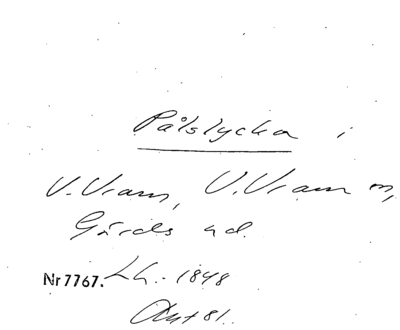 Pålslycka i
V. Vram, V. Vram sn,
Gärds hd.
Nr 7767. Lh. 1848
Akt 81.